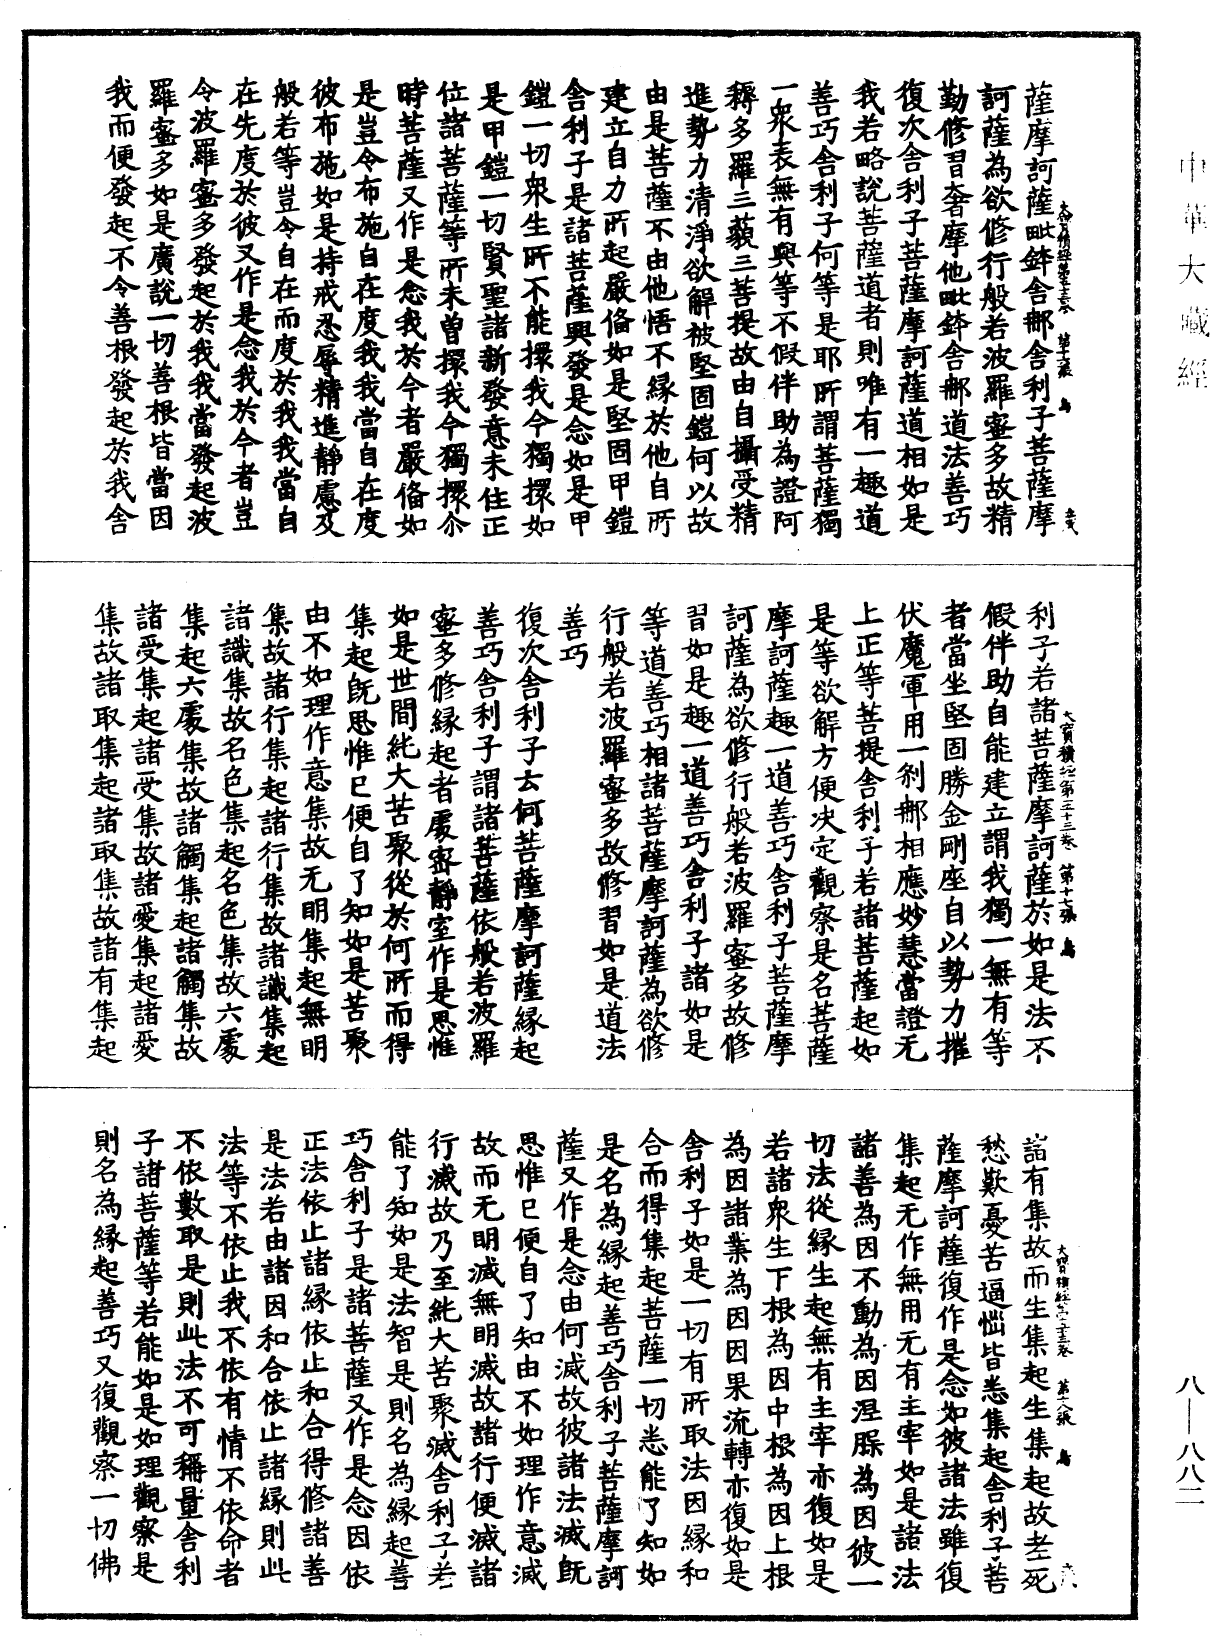 中華大藏經
薩摩訶薩毗鉢舍那舍利子菩薩摩
訶薩為欲修行般若波羅蜜多故精
勤修習奢摩他毗鉢舍那道法善巧
復次舍利子菩薩摩訶薩道相如是
我若略說菩薩道者則唯有一趣道
善巧舍利子何等是耶所謂菩薩獨
一眾表無有與等不假伴助為證阿
耨多羅三藐三菩提故由自攝受精
進勢力清淨欲解被堅固鎧何以故
由是菩薩不由他悟不緣於他自所
建立自力所起嚴備如是堅固甲鎧
舍利子是諸菩薩興發是念如是甲
鎧一切眾生所不能擐我今獨擐如
是甲鎧一切賢聖諸新發意未住正
位諸菩薩等所未曾擐我今獨擐尒
時菩薩又作是念我於今者嚴備如
是豈令布施自在度我我當自在度
彼布施如是持戒忍辱精進靜慮及
般若等豈令自在而度於我我當自
在先度於彼又作是念我於今者豈
令波羅蜜多發起於我我當發起波
羅蜜多如是廣說一切善根皆當因
我而便發起不令善根發起於我舍
大寶積經第三十三卷 第十七張 鳥
利子若諸菩薩摩訶薩於如是法不
假伴助自能建立謂我獨一無有等
者當坐堅固勝金剛座自以勢力摧
伏魔軍用一剎那相應妙慧當證无
上正等菩提舍利子若諸菩薩起如
是等欲解方便決定觀察是名菩薩
摩訶薩趣一道善巧舍利子菩薩摩
訶薩為欲修行般若波羅蜜多故修
習如是趣一道善巧舍利子諸如是
等道善巧相諸菩薩摩訶薩為欲修
行般若波羅蜜多故修習如是道法
善巧
復次舍利子云何菩薩摩訶薩緣起
善巧舍利子謂諸菩薩依般若波羅
蜜多修緣起者處密靜室作是思惟
如是世間純大苦聚從於何所而得
集起既思惟已便自了知如是苦聚
由不如理作意集故无明集起無明
集故諸行集起諸行集故諸識集起
諸識集故名色集起名色集故六處
集起六處集故諸觸集起諸觸集故
諸受集起諸受集故諸愛集起諸愛
集故諸取集起諸取集故諸有集起
諸有集故而生集起生集起故老死
愁歎憂苦逼惱皆悉集起舍利子菩
薩摩訶薩復作是念如彼諸法雖復
集起无作無用无有主宰如是諸法
諸善為因不動為因涅槃為因彼一
切法從緣生起無有主宰亦復如是
若諸眾生下根為因中根為因上根
為因諸業為因因果流轉亦復如是
舍利子如是一切有所取法因緣和
合而得集起菩薩一切悉能了知如
是名為緣起善巧舍利子菩薩摩訶
薩又作是念由何滅故彼諸法滅既
思惟已便自了知由不如理作意滅
故而无明滅無明滅故諸行便滅諸
行滅故乃至純大苦聚滅舍利子若
能了知如是法智是則名為緣起善
巧舍利子是諸菩薩又作是念因依
正法依止諸緣依止和合得修諸善
是法若由諸因和合依止諸緣則此
法等不依止我不依有情不依命者
不依數取是則此法不可稱量舍利
子諸菩薩等若能如是如理觀察是
則名為緣起善巧又復觀察一切佛
八—八八二